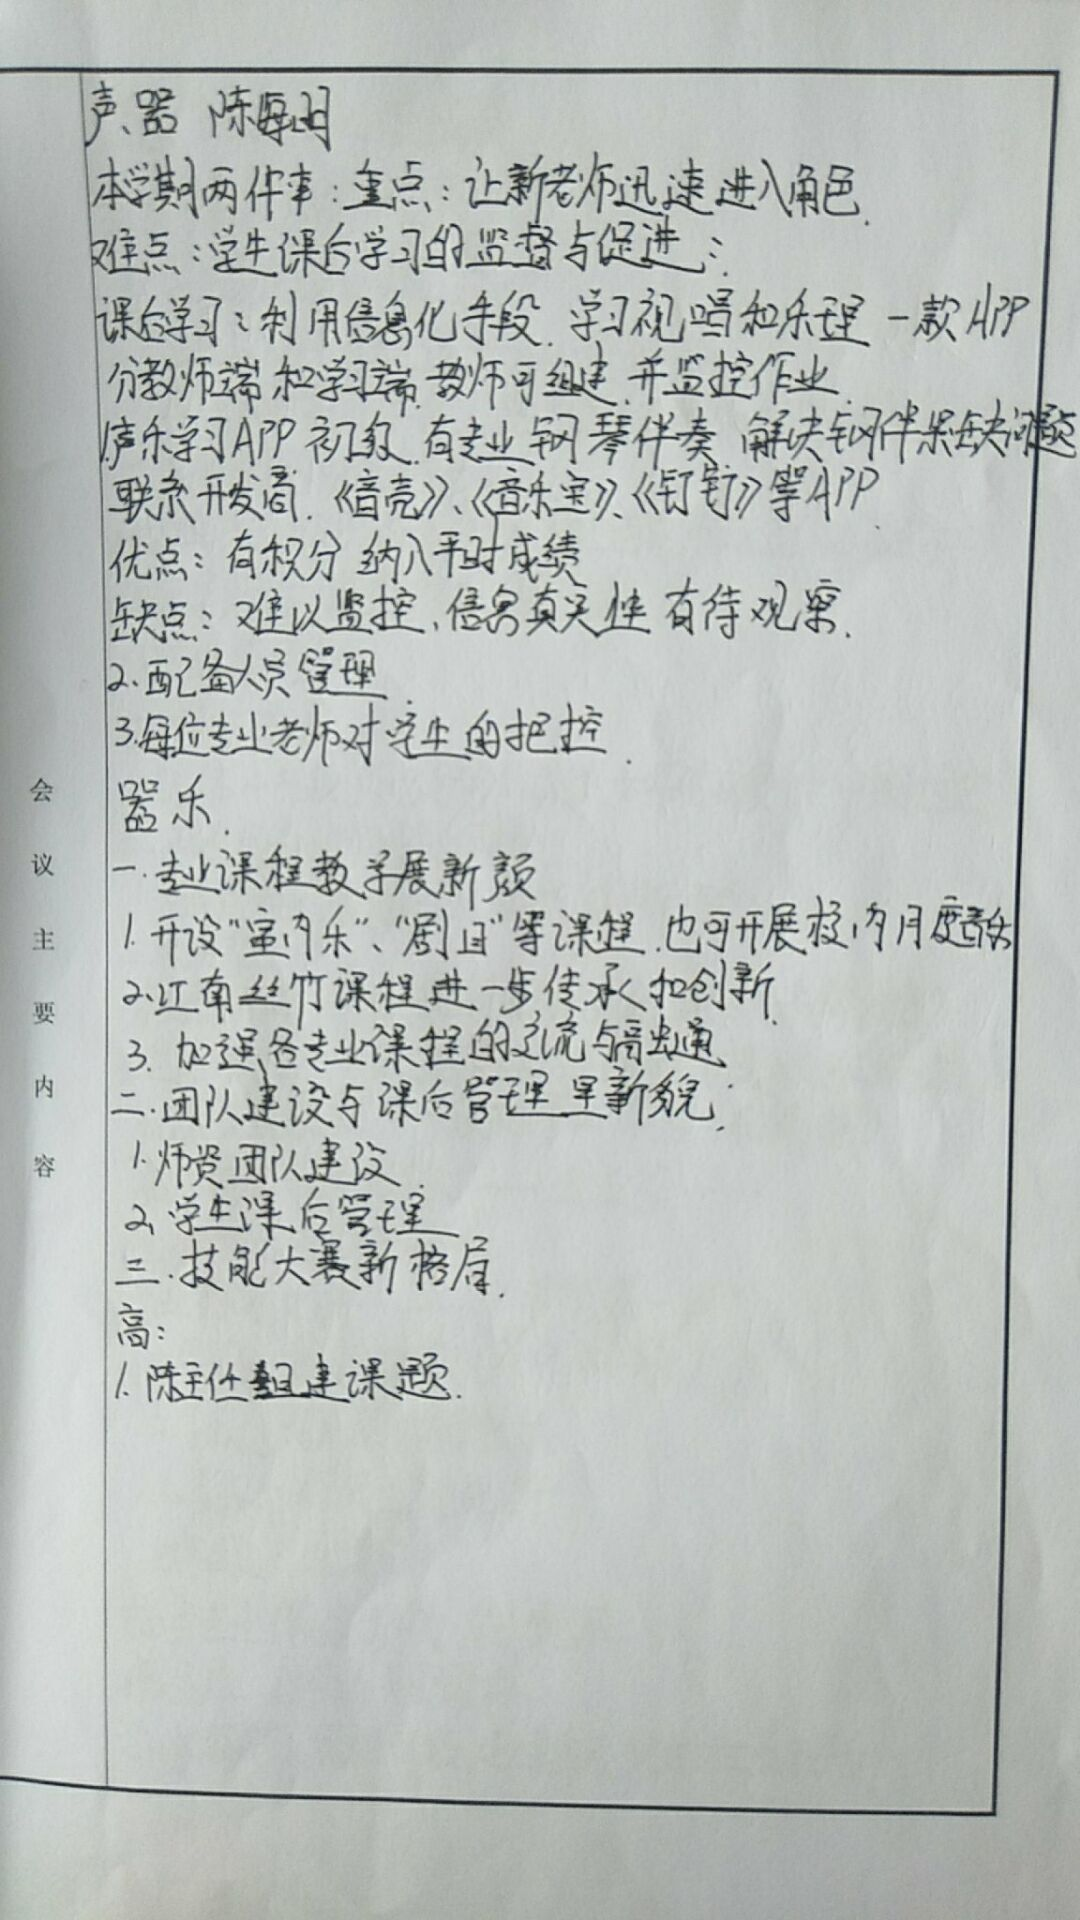 声、器 陈海明
本学期两件事：重点：让新老师迅速进入角色.
难点：学生课后学习的监督与促进：
课后学习：利用信息化手段. 学习视唱和乐理 一款APP
分教师端和学习端.教师可组建.并监控作业.
1.声乐学习APP 初级.有专业钢琴伴奏 解决钢伴紧缺问题
联系开发商.《音壳》、《音乐宝》、《钉钉》等APP.
优点：有积分 纳入平时成绩
缺点：难以监控、信息真实性有待观察.
2.配备人员管理.
3.每位专业老师对学生的把控.
器乐.
一.专业课程教学展新颜
1.开设“室内乐”、“剧目”等课程.也可开展校内月度
2.江南丝竹课程进一步传承和创新.
3. 加强各专业课程的交流与
二.团队建设与课后管理呈新貌：
1.师资团队建设.
2.学生课后管理
三.技能大赛新格局.
高：
1.陈主任组建课题.
会
议
主
要
内
容